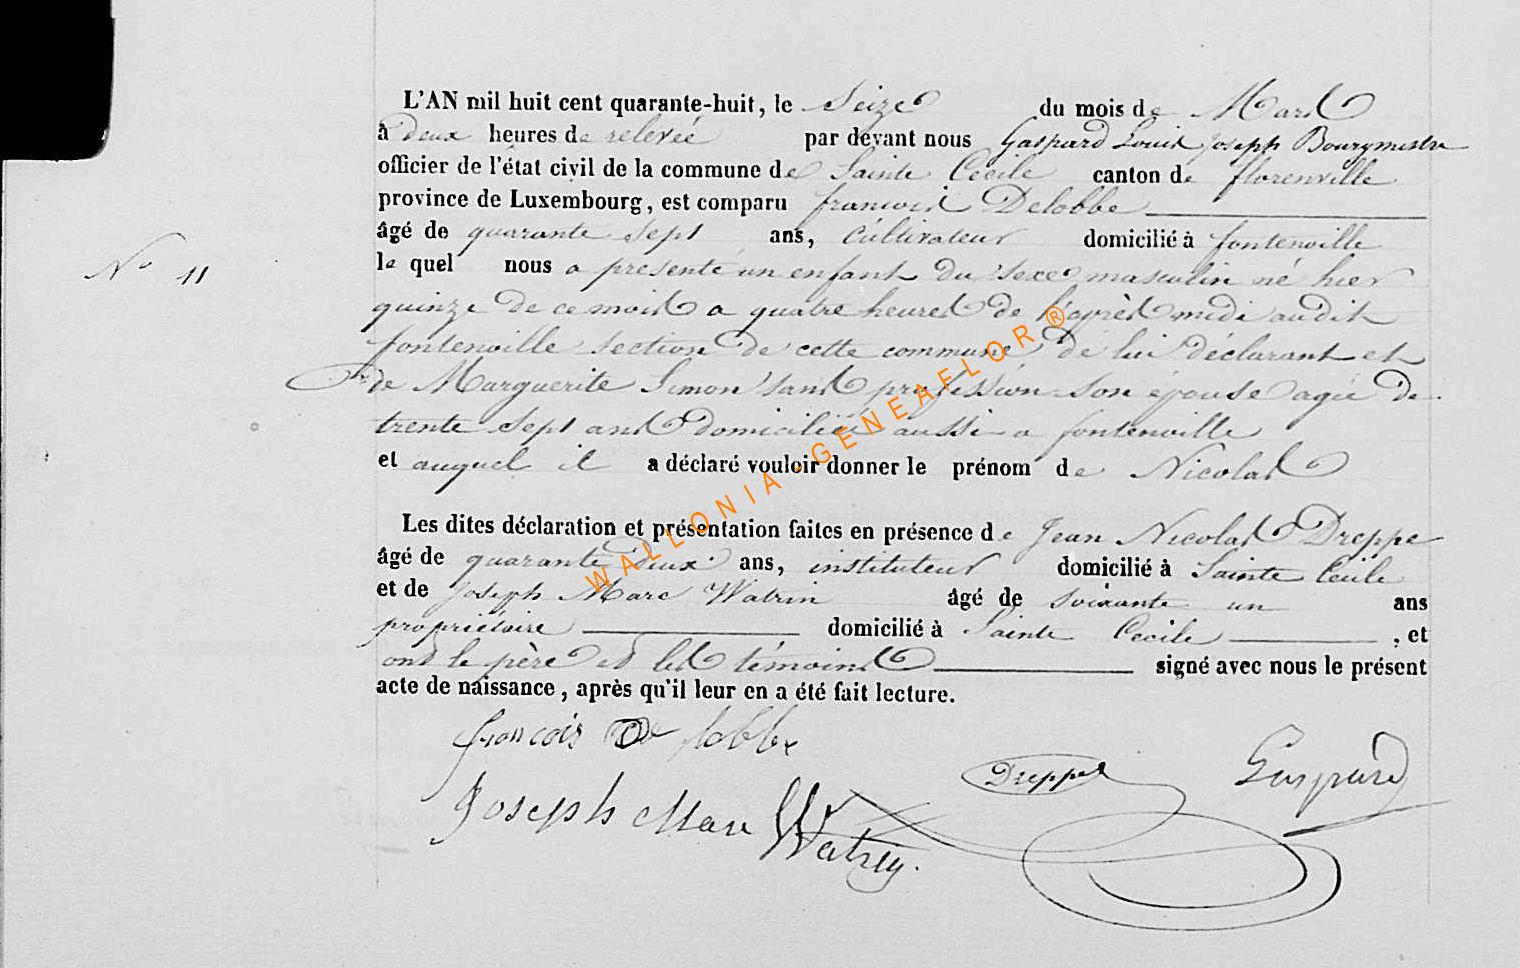 L'AN mil huit cent quarante-huit, le Seize du mois de Mars
à deux heures de relevée par devant nous Gaspard Louis Joseph Bourgmestre
officier de l'état civil de la commune de Sainte Cécile canton de florenville
province de Luxembourg, est comparu francois Delobbe
âgé de quarante sept ans, cultivateur domicilié à fontenoille
le quel nous a présenté un enfant du sexe masculin né hier
N° 11
quinze de ce mois a quatre heures de l'après midi audit
fontenoille section de cette commune de lui déclarant et
de Marguerite Simon sans profession son épouse agée de
trente sept ans domiciliée aussi a fontenoille
et auquel il a déclaré vouloir donner le prénom de Nicolas
Les dites déclaration et présentation faites en présence de Jean Nicolas Dreppe
âgé de quarante deux ans, instituteur domicilié à Sainte Cecile
et de Joseph Marc Watrin âgé de soixante un ans
propriétaire domicilié à Sainte Cecile , et
ont le père et les témoins signé avec nous le présent
acte de naissance, après qu'il leur en a été fait lecture.
francois De lobbe
Dreppe Gaspard
Joseph Marc Watrin.
WALLONIA-GENEAFLOR®